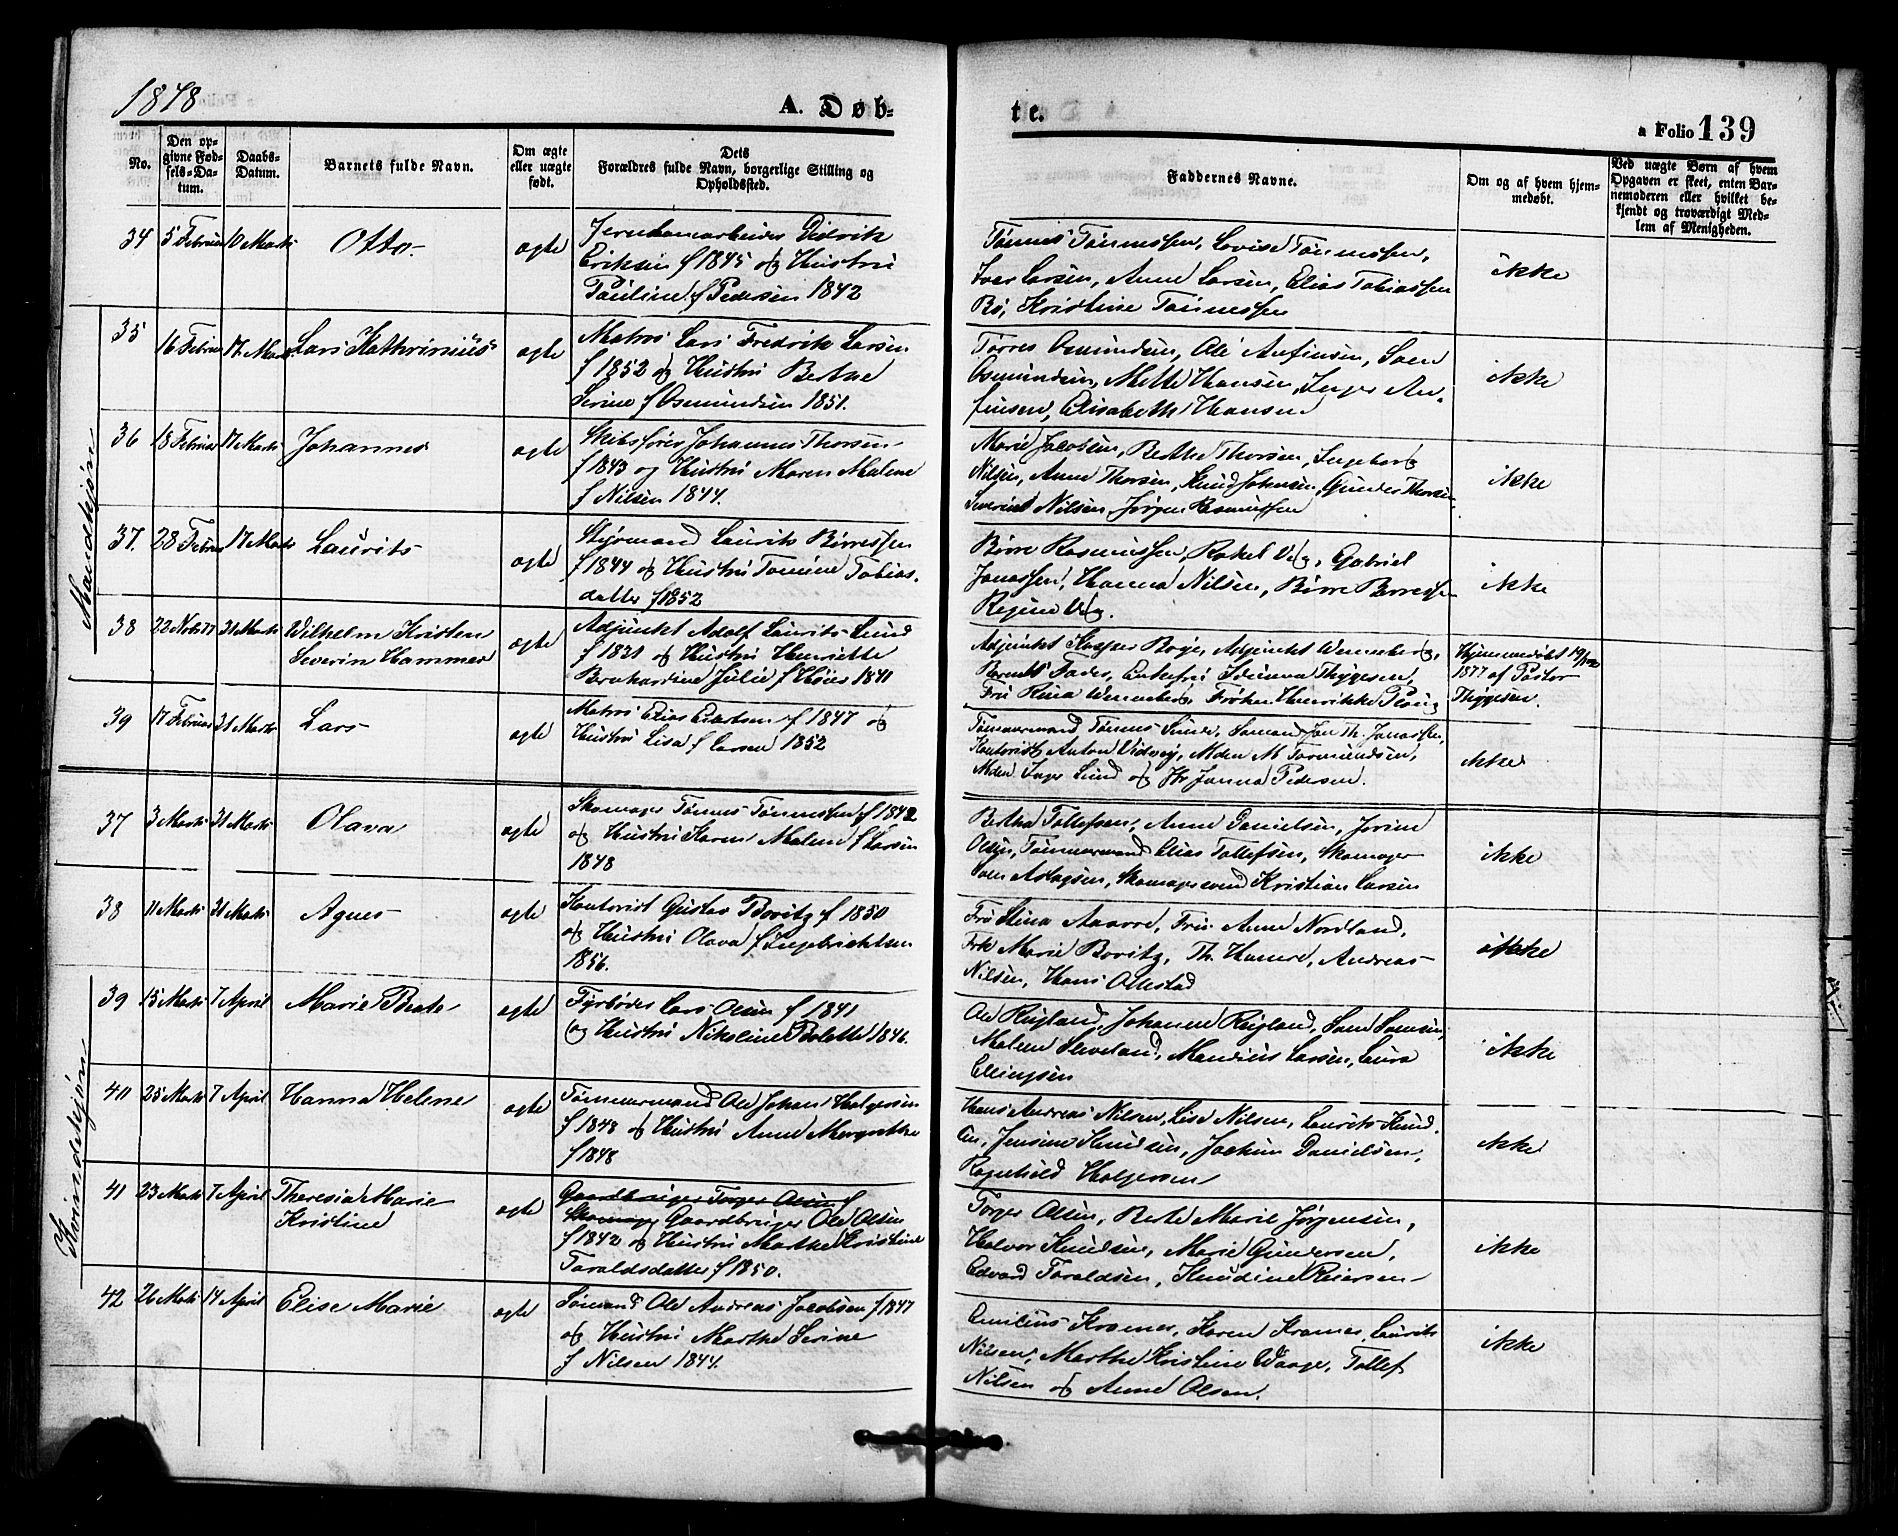 1878
A. Døb-
te.
a Folio 139
No.
Den op-
givne Fød-
sels-Da-
tum.
Daabs-
Datum.
Barnets fulde Navn.
Om ægte
eller uægte
født.
Dets
Forældres fulde Navn, borgerlige Stilling og
Opholdssted.
Faddernes Navne.
Om og af hvem hjem-
medøbt.
Ved uægte Børn af hvem
Opgaven er skeet, enten Bar-
nemoderen eller hvilket be-
kjendt og troværdigt Med-
lem af Menigheden.
34 5 Februar 10 Marts Otto. ægte
Jernbanearbeider Didrik
Eriksen f 1845 og Hustru
Pauline f Pedersen 1842
Tønnes Tønnessen, Lovise Tønnessen,
Iver Larsen, Anne Larsen, Elias Tobiassen
Bø, Kristine Tønnessen
ikke
Mandkjøn
35 16 Februar 17 Marts Lars Kathrinius ægte
Matros Lars Fredrik Larsen
f 1852 og Hustru Berthe
Serine f Osmundsen 1851.
Torres Osmundsen, Ole Anfinsen, Sven
Osmundsen, Mette Hansen, Inger An-
finsen, Elisabeth Hansen
ikke
36 18 Februar 17 Marts Johannes ægte
Skibsfører Johannes Thorsen
f 1843 og Hustru Maren Malene
f Nilsen 1844.
Marie Jacobsen, Berthe Thorsen, Ingeborg
Nilsen, Anne Thorsen, Knud Johnsen, Gunder Thorsen
Severine Nilsen, Jørgen Rasmussen
ikke
37. 28 Februar 17 Marts Laurits ægte
Styrmand Laurits Børresen
f 1844 og Hustru Tomine Tobias-
datter f 1852
Børre Rasmussen, Rakel Vig, Gabriel
Jonassen, Hanna Nilsen, Børre Børresen
Regine Vig.
ikke
38 22 Nov 77 31 Marts Wilhelm Kristen
Severin Hammer ægte
Adjunkt Adolf Laurits Lund
f 1831 og Hustru Henriette
Bernhardine Julie f Høier 1841
Adjunkt Kasper Boye, Adjunkt Wenneberg,
Barnets Fader, Enkefru Idunna Thygesen,
Fru Rina Wenneberg, Frøken Henrikke Ploug
Hjemmedøbt 19/12
1877 af Pastor
Thygesen.
39 17 Februar 31 Marts Lars ægte
Matros Elias Edvardsen f 1847 og
Hustru Lisa f Larsen 1852
Tømmermand Tønnes Lunde, Sømand Jon Th. Jonassen,
Kontorist Anton Vidvei, Mdm M. Tormundsen,
Mdm Inger Lund og Jfr Janna Pedersen.
ikke
37 3 Marts 31 Marts Olava ægte
Skomager Tønnes Tønnessen f 1842
og Hustru Karen Malene f Larsen
1848
Bertha Tollefsen, Anne Danielsen, Jorine
Olsen, Tømmermand Elias Tollefsen, Skomager
Sven Aslagsen, Skomagersvend Kristian Larsen
ikke
38 11 Marts 31 Marts Agnes ægte
Kontorist Gustav Bovitz f 1850
og Hustru Olava f Ingebrichtsen
1856.
Fru Stina Aaarre, Fru Anne Nordland,
Frk Marie Bovitz, Th. Hamre, Andreas
Nilsen, Hans Ollestad
ikke
Kvindekjøn
39 15 Marts 7 April Marie Beate ægte
Fyrbøder Lars Olsen f 1841
og Hustru Nikoline Bolette 1846.
Ole Rugland, Johanne Rugland, Sven Svensen,
Malene Sleveland, Mandius Larsen, Laura
Ellingsen
ikke
40 25 Marts 7 April Hanna Helene ægte
Tømmermand Ole Johan Holgersen
f 1848 og Hustru Anne Margrethe
f 1848
Hans Andreas Nilsen, Lise Nilsen, Laurits Knud-
sen, Jensine Knudsen, Jochum Danielsen,
Ragnhild Holgersen
ikke
41 23 Marts 7 April Theresia Marie
Kristine ægte
Gaardbruger Torger Olsen f
Skomager Gaardbruger Ole Olsen
f 1842 og Hustru Marthe Kristine
Toraldsdatter f 1850.
Torger Olsen, Berte Marie Jørgensen,
Halvor Knudsen, Marie Gundersen,
Edvard Toraldsen, Knudine Reiersen
ikke
42 26 Marts 14 April Elise Marie ægte
Sømand Ole Andreas Jacobsen f 1847
og Hustru Marthe Serine
f Nilsen 1844.
Emilius Kramer, Karen Kramer, Laurits
Nilsen, Marthe Kristine Waage, Tollef
Nilsen og Anne Olsen.
ikke